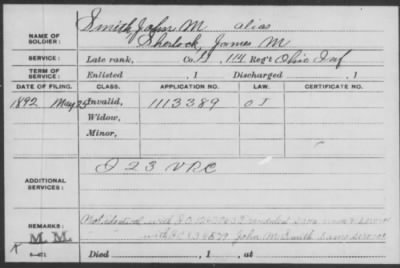 Smith, John M alias
NAME OF SOLDIER: Sherlock, James M
SERVICE: Late rank, Co. 114 Reg't Ohio Inf
TERM OF SERVICE: Enlisted , 1 Discharged , 1
DATE OF FILING. CLASS. APPLICATION NO. LAW. CERTIFICATE NO.
1892 May Invalid, 1113389
Widow,
Minor,
ADDITIONAL SERVICES: I 23 VRC
REMARKS: Not identical with same name & service
M. M. with John M Smith same service
Died , 1 , at